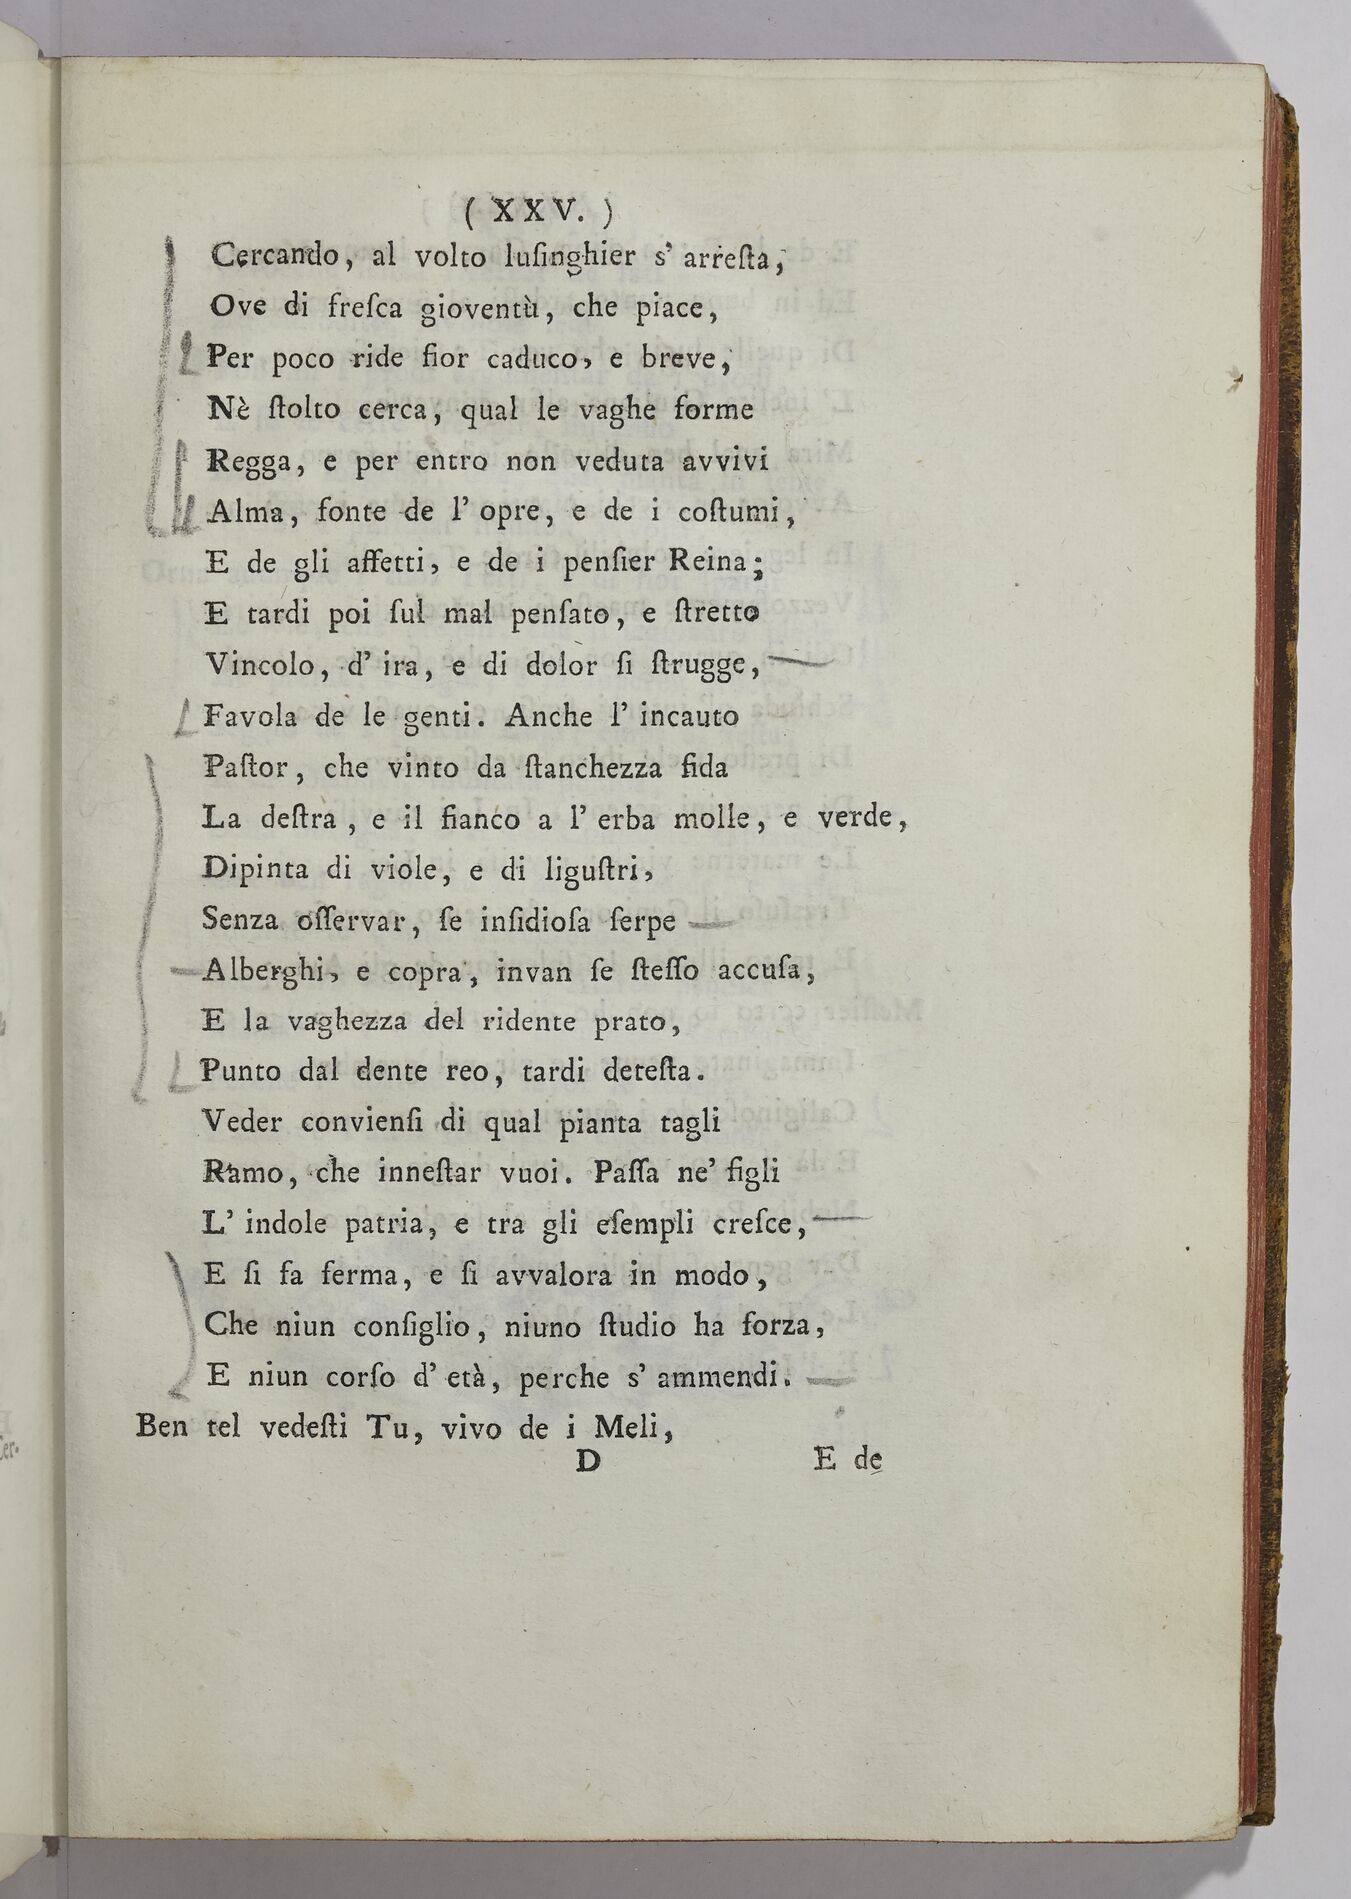 ( XXV. )
Cercando, al volto luſinghier s' arreſta,
Ove di freſca gioventù, che piace,
Per poco ride fior caduco, e breve,
Nè ſtolto cerca, qual le vaghe forme
Regga, e per entro non veduta avvivi
Alma, fonte de l' opre, e de i coſtumi,
E de gli affetti, e de i penſier Reina;
E tardi poi ſul mal penſato, e ſtretto
Vincolo, d' ira, e di dolor ſi ſtrugge,
Favola de le genti. Anche l' incauto
Paſtor, che vinto da ſtanchezza fida
La deſtra, e il fianco a l' erba molle, e verde,
Dipinta di viole, e di liguſtri,
Senza oſſervar, ſe inſidioſa ſerpe
Alberghi, e copra, invan ſe ſteſſo accuſa,
E la vaghezza del ridente prato,
Punto dal dente reo, tardi deteſta.
Veder convienſi di qual pianta tagli
Ramo, che inneſtar vuoi. Paſſa ne' figli
L' indole patria, e tra gli eſempli creſce,
E ſi fa ferma, e ſi avvalora in modo,
Che niun conſiglio, niuno ſtudio ha forza,
E niun corſo d' età, perche s' ammendi.
Ben tel vedeſti Tu, vivo de i Meli,
D E de